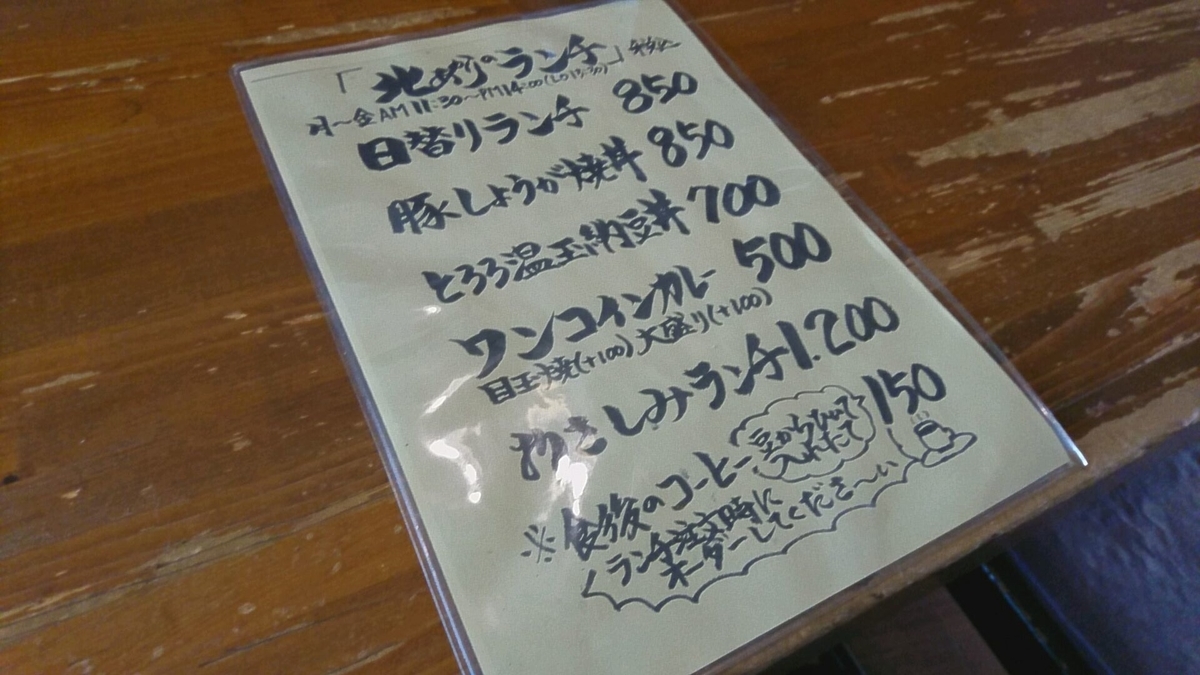 「北あかりのランチ」税込
月〜金 AM 11:30〜PM 14:00 (LO 13:30)
日替りランチ 850
豚しょうが焼丼 850
とろろ温玉納豆丼 700
ワンコインカレー 500
目玉焼(+100) 大盛り(+100)
おさしみランチ 1.200
※食後のコーヒー 150
豆からひいて
入れたて
ランチ注文時に
オーダーしてくださ〜い